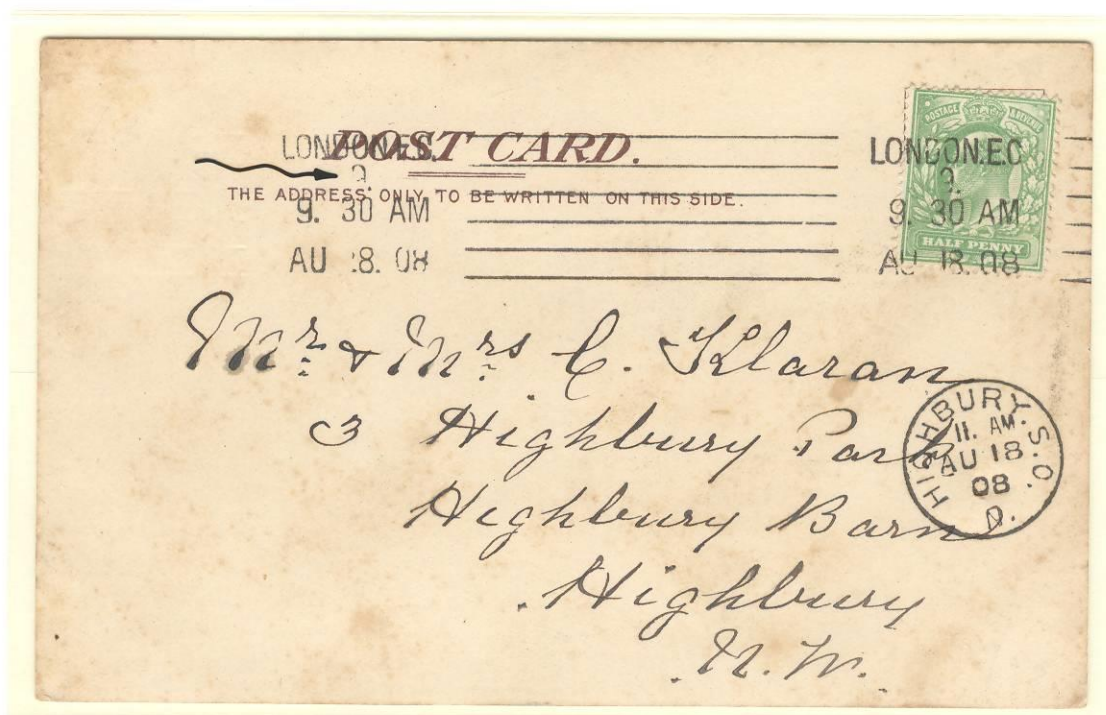 LONDON.E.C.
POST CARD.
9.
THE ADDRESS ONLY TO BE WRITTEN ON THIS SIDE.
9. 30 AM
AU 18. 08
LONDON.E.C
9.
9. 30 AM
AU 18. 08
POSTAGE & REVENUE
HALF PENNY
Mr. & Mrs. C. Klaran
3 Highbury Park
Highbury Barn
Highbury
N.W.
HIGHBURY. S.O.
11. AM.
AU 18
08
N.